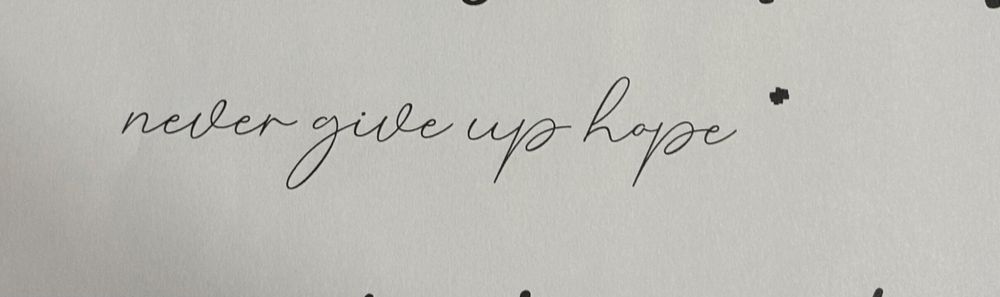 never give up hope